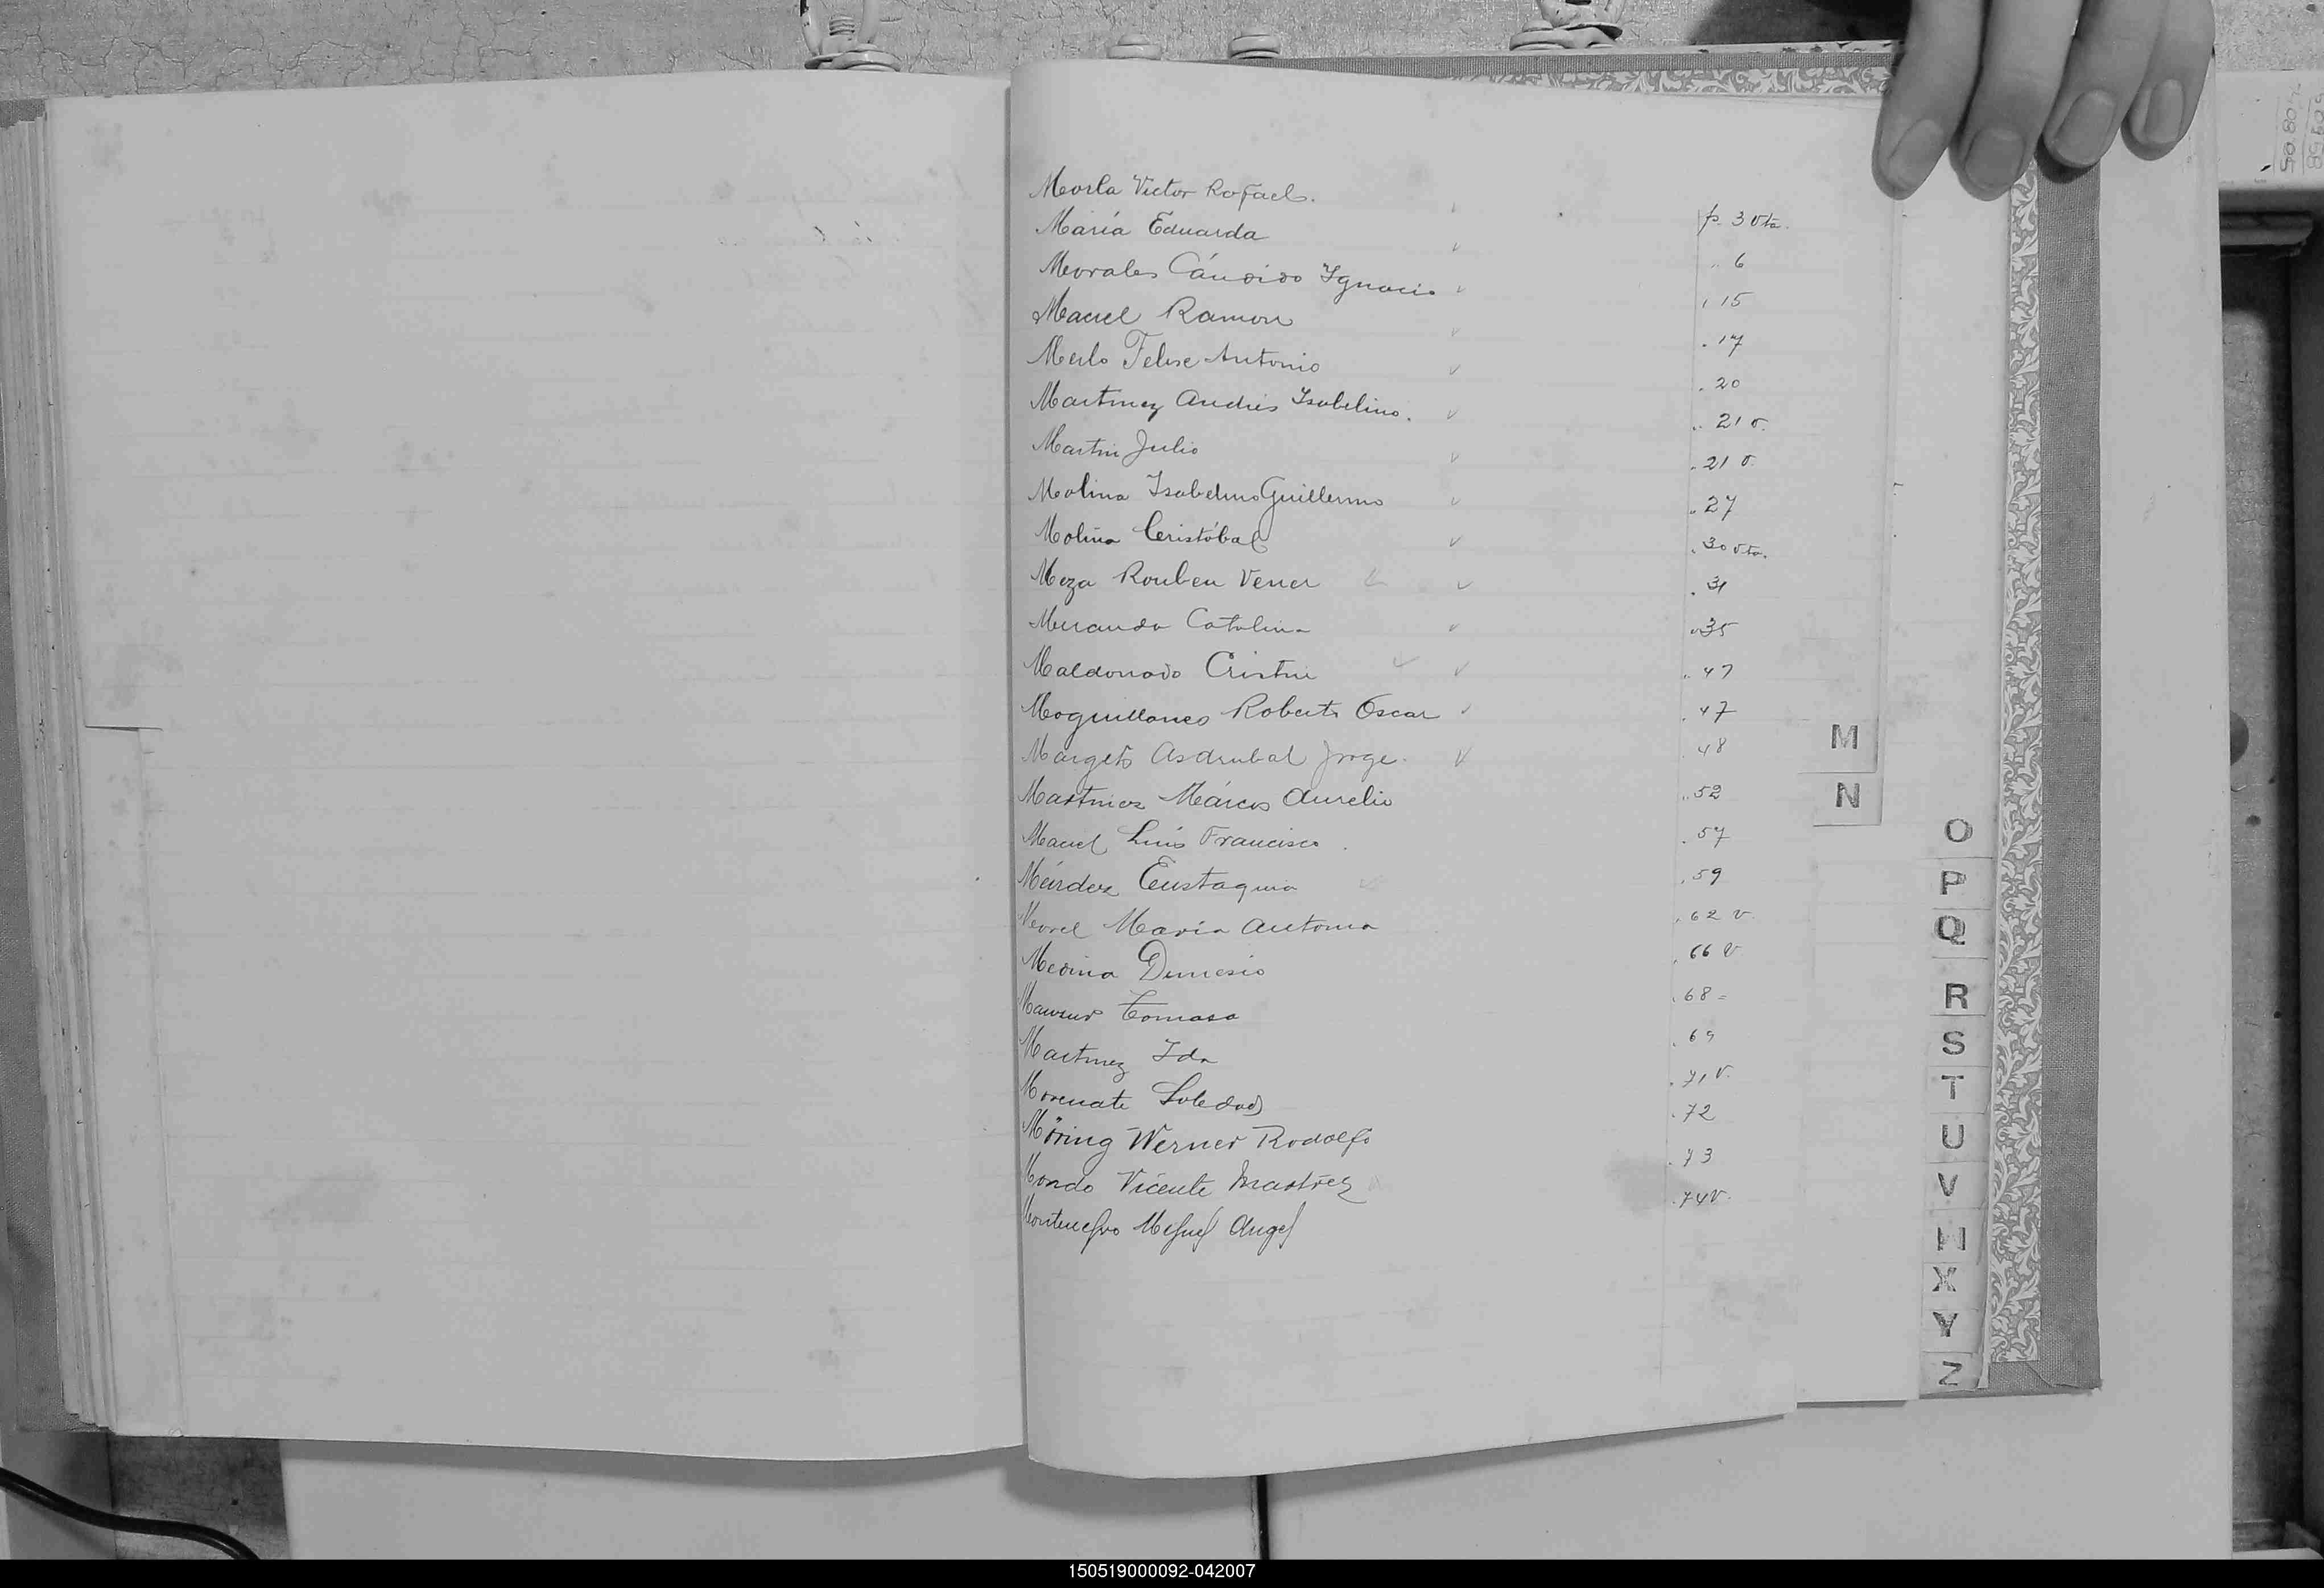 Morla Victor Rafael. p. 3 vta.
María Eduarda " 6
Morales Cándido Ignacio " 15
Maciel Ramon " 17
Merlo Felise Antonio " 20
Martinez Andrés Isabelino. " 21 v.
Martin Julio " 21 v.
Molina Isabelino Guillermo " 27
Molina Cristóbal " 30 vta.
Meza Rouben Vener " 31
Miranda Catalina " 35
Maldonado Cristin " 47
Moguillanes Roberto Oscar " 47
Margets Asdrubal Jorge. 48
Martinez Márcos Aurelio " 52
Maciel Luis Francisco . 57
Méndez Eustaquia . 59
Morel María Antonia . 62 v.
Medina Dimesio . 66 v
Mansur Tomasa . 68 =
Martinez Ida . 69
Morenate Soledad . 71 v.
Möring Werner Rodolfo . 72
Mondo Vicente Mastrez . 73
Montenegro Miguel Angel . 74 v.
M
N
O
P
Q
R
S
T
U
V
W
X
Y
Z
150519000092-042007